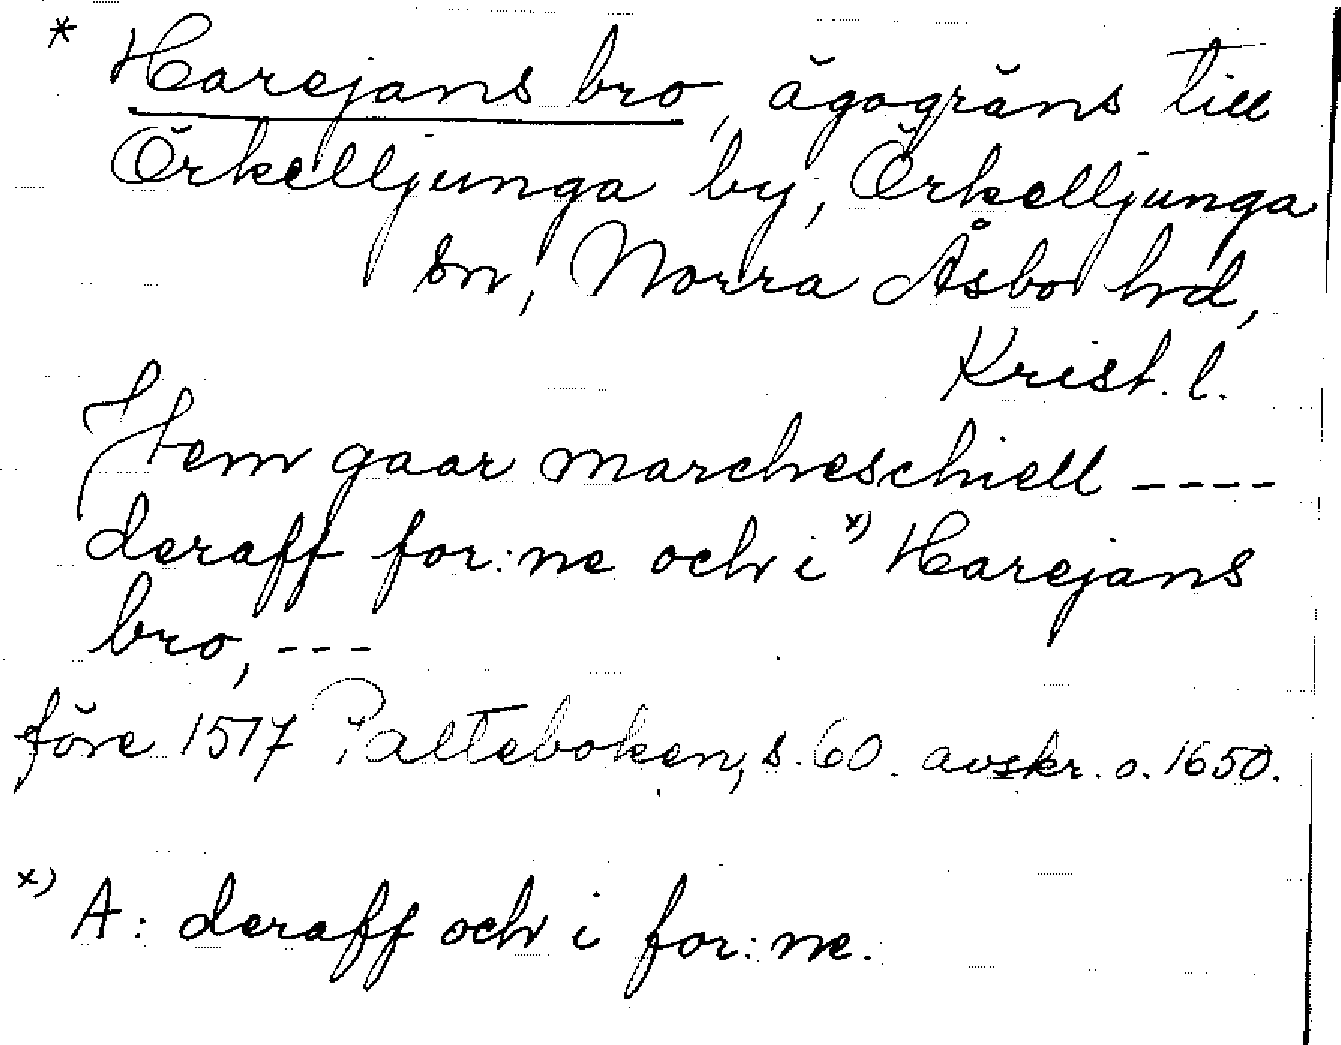 * Harejans bro, ägogräns till
Örkelljunga by, Örkelljunga
sn, Norra Åsbo hd,
Krist. l.
Item gaar marcheschiell ----
deraff for:ne och i x) Harejans
bro, ---
före 1517 Palteboken, s. 60. avskr. o. 1650.
x) A: deraff och i for:ne.